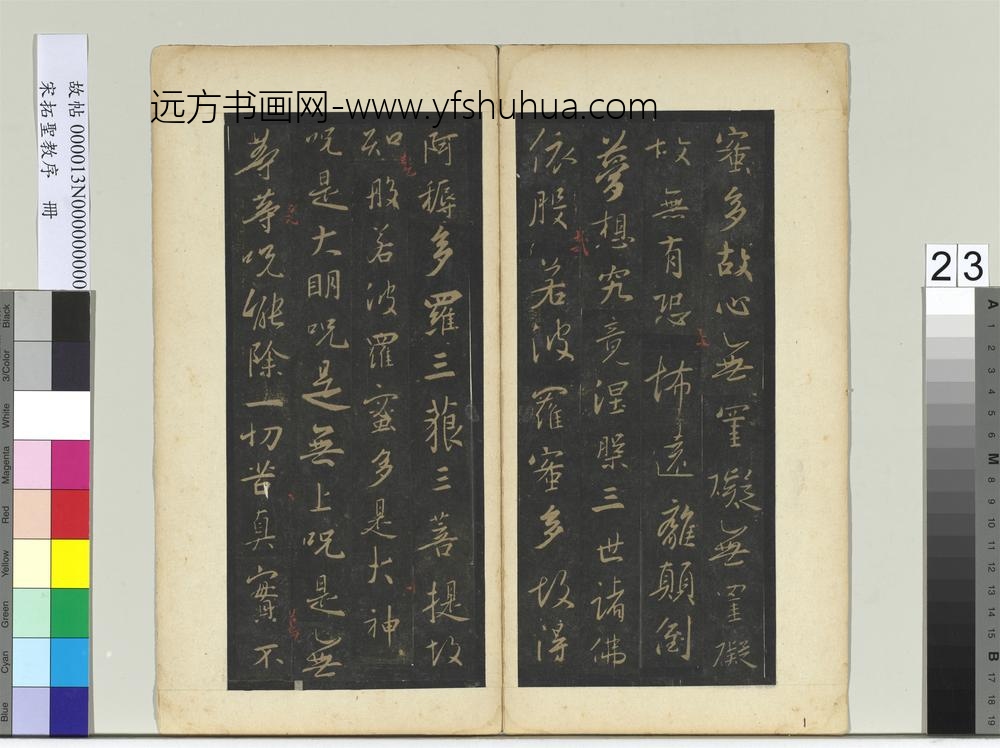 远方书画网-www.yfshuhua.com
蜜多故心無罣礙無罣礙
故無有恐怖遠離顛倒
夢想究竟涅槃三世諸佛
依般若波羅蜜多故得
阿耨多羅三藐三菩提故
知般若波羅蜜多是大神
呪是大明呪是無上呪是無
等等呪能除一切苦真實不
故帖 000013N000000000
宋拓聖教序 冊
23
Black
3/Color
White
Magenta
Red
Yellow
Green
Cyan
Blue
A 1 2 3 4 5 6 M 8 9 10 11 12 13 14 15 B 17 18 19
1